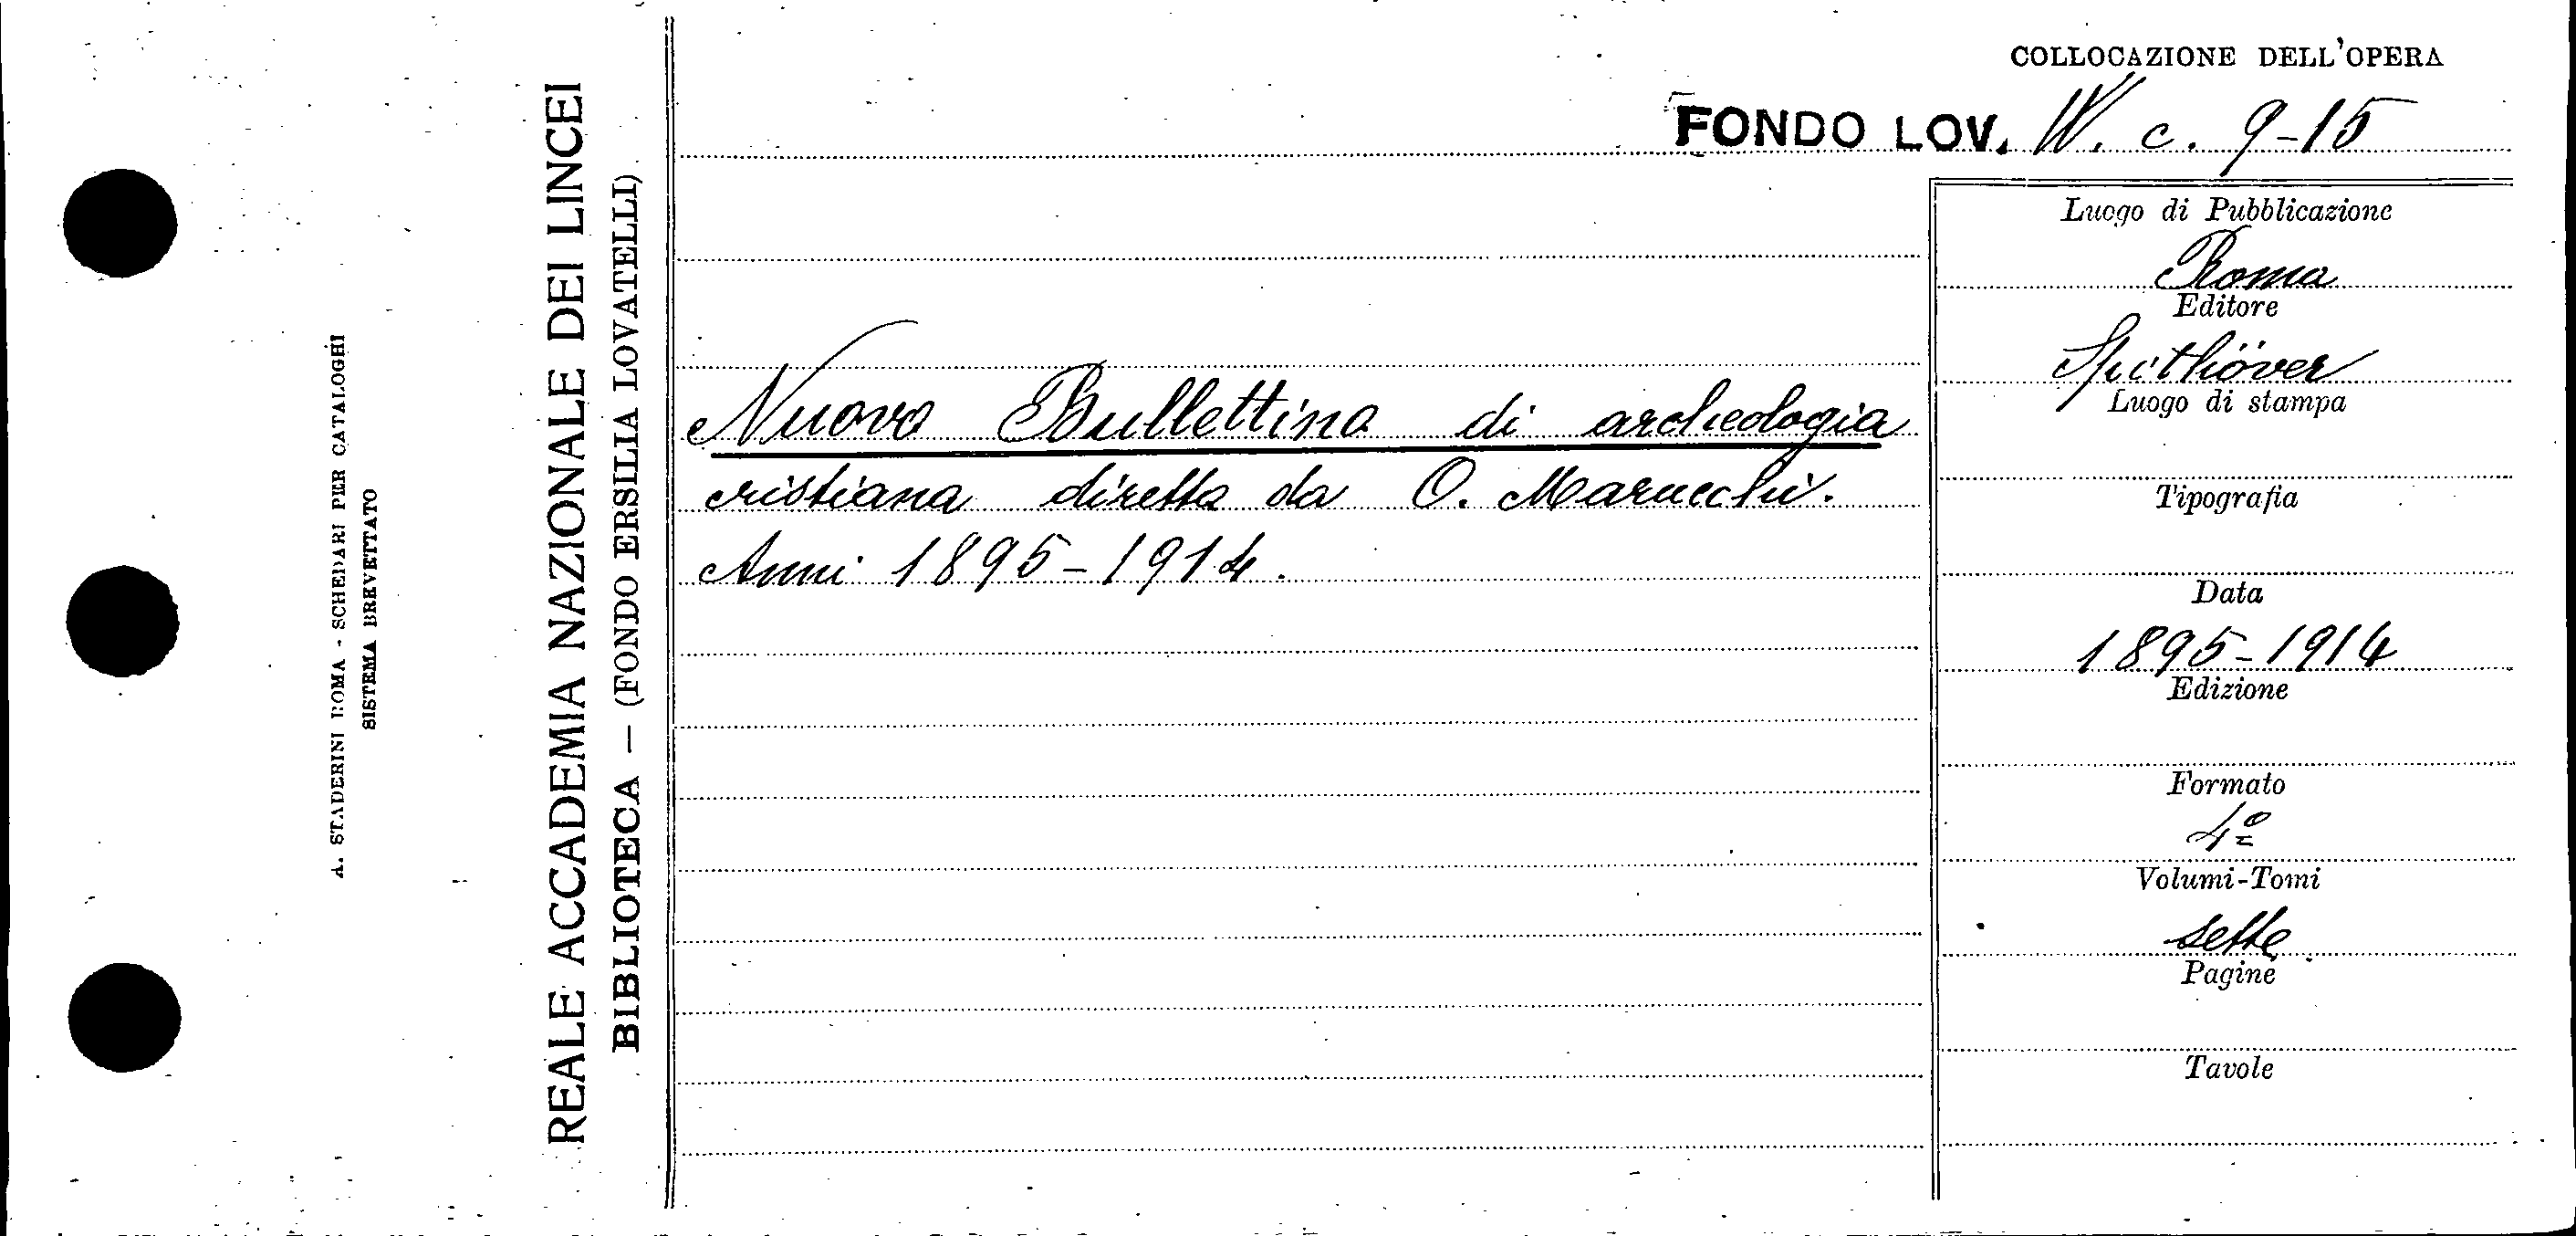 COLLOCAZIONE DELL'OPERA
FONDO LOV. IV. c. 9-15
A. STADERINI ROMA - SCHEDARI PER CATALOGHI
SISTEMA BREVETTATO
REALE ACCADEMIA NAZIONALE DEI LINCEI
BIBLIOTECA — (FONDO ERSILIA LOVATELLI)
Nuovo Bullettino di archeologia
cristiana diretto da O. Marucchi.
Anni 1895-1914.
Luogo di Pubblicazione
Roma
Editore
Spithöver
Luogo di stampa
Tipografia
Data
1895-1914
Edizione
Formato
4º
Volumi-Tomi
sette
Pagine
Tavole